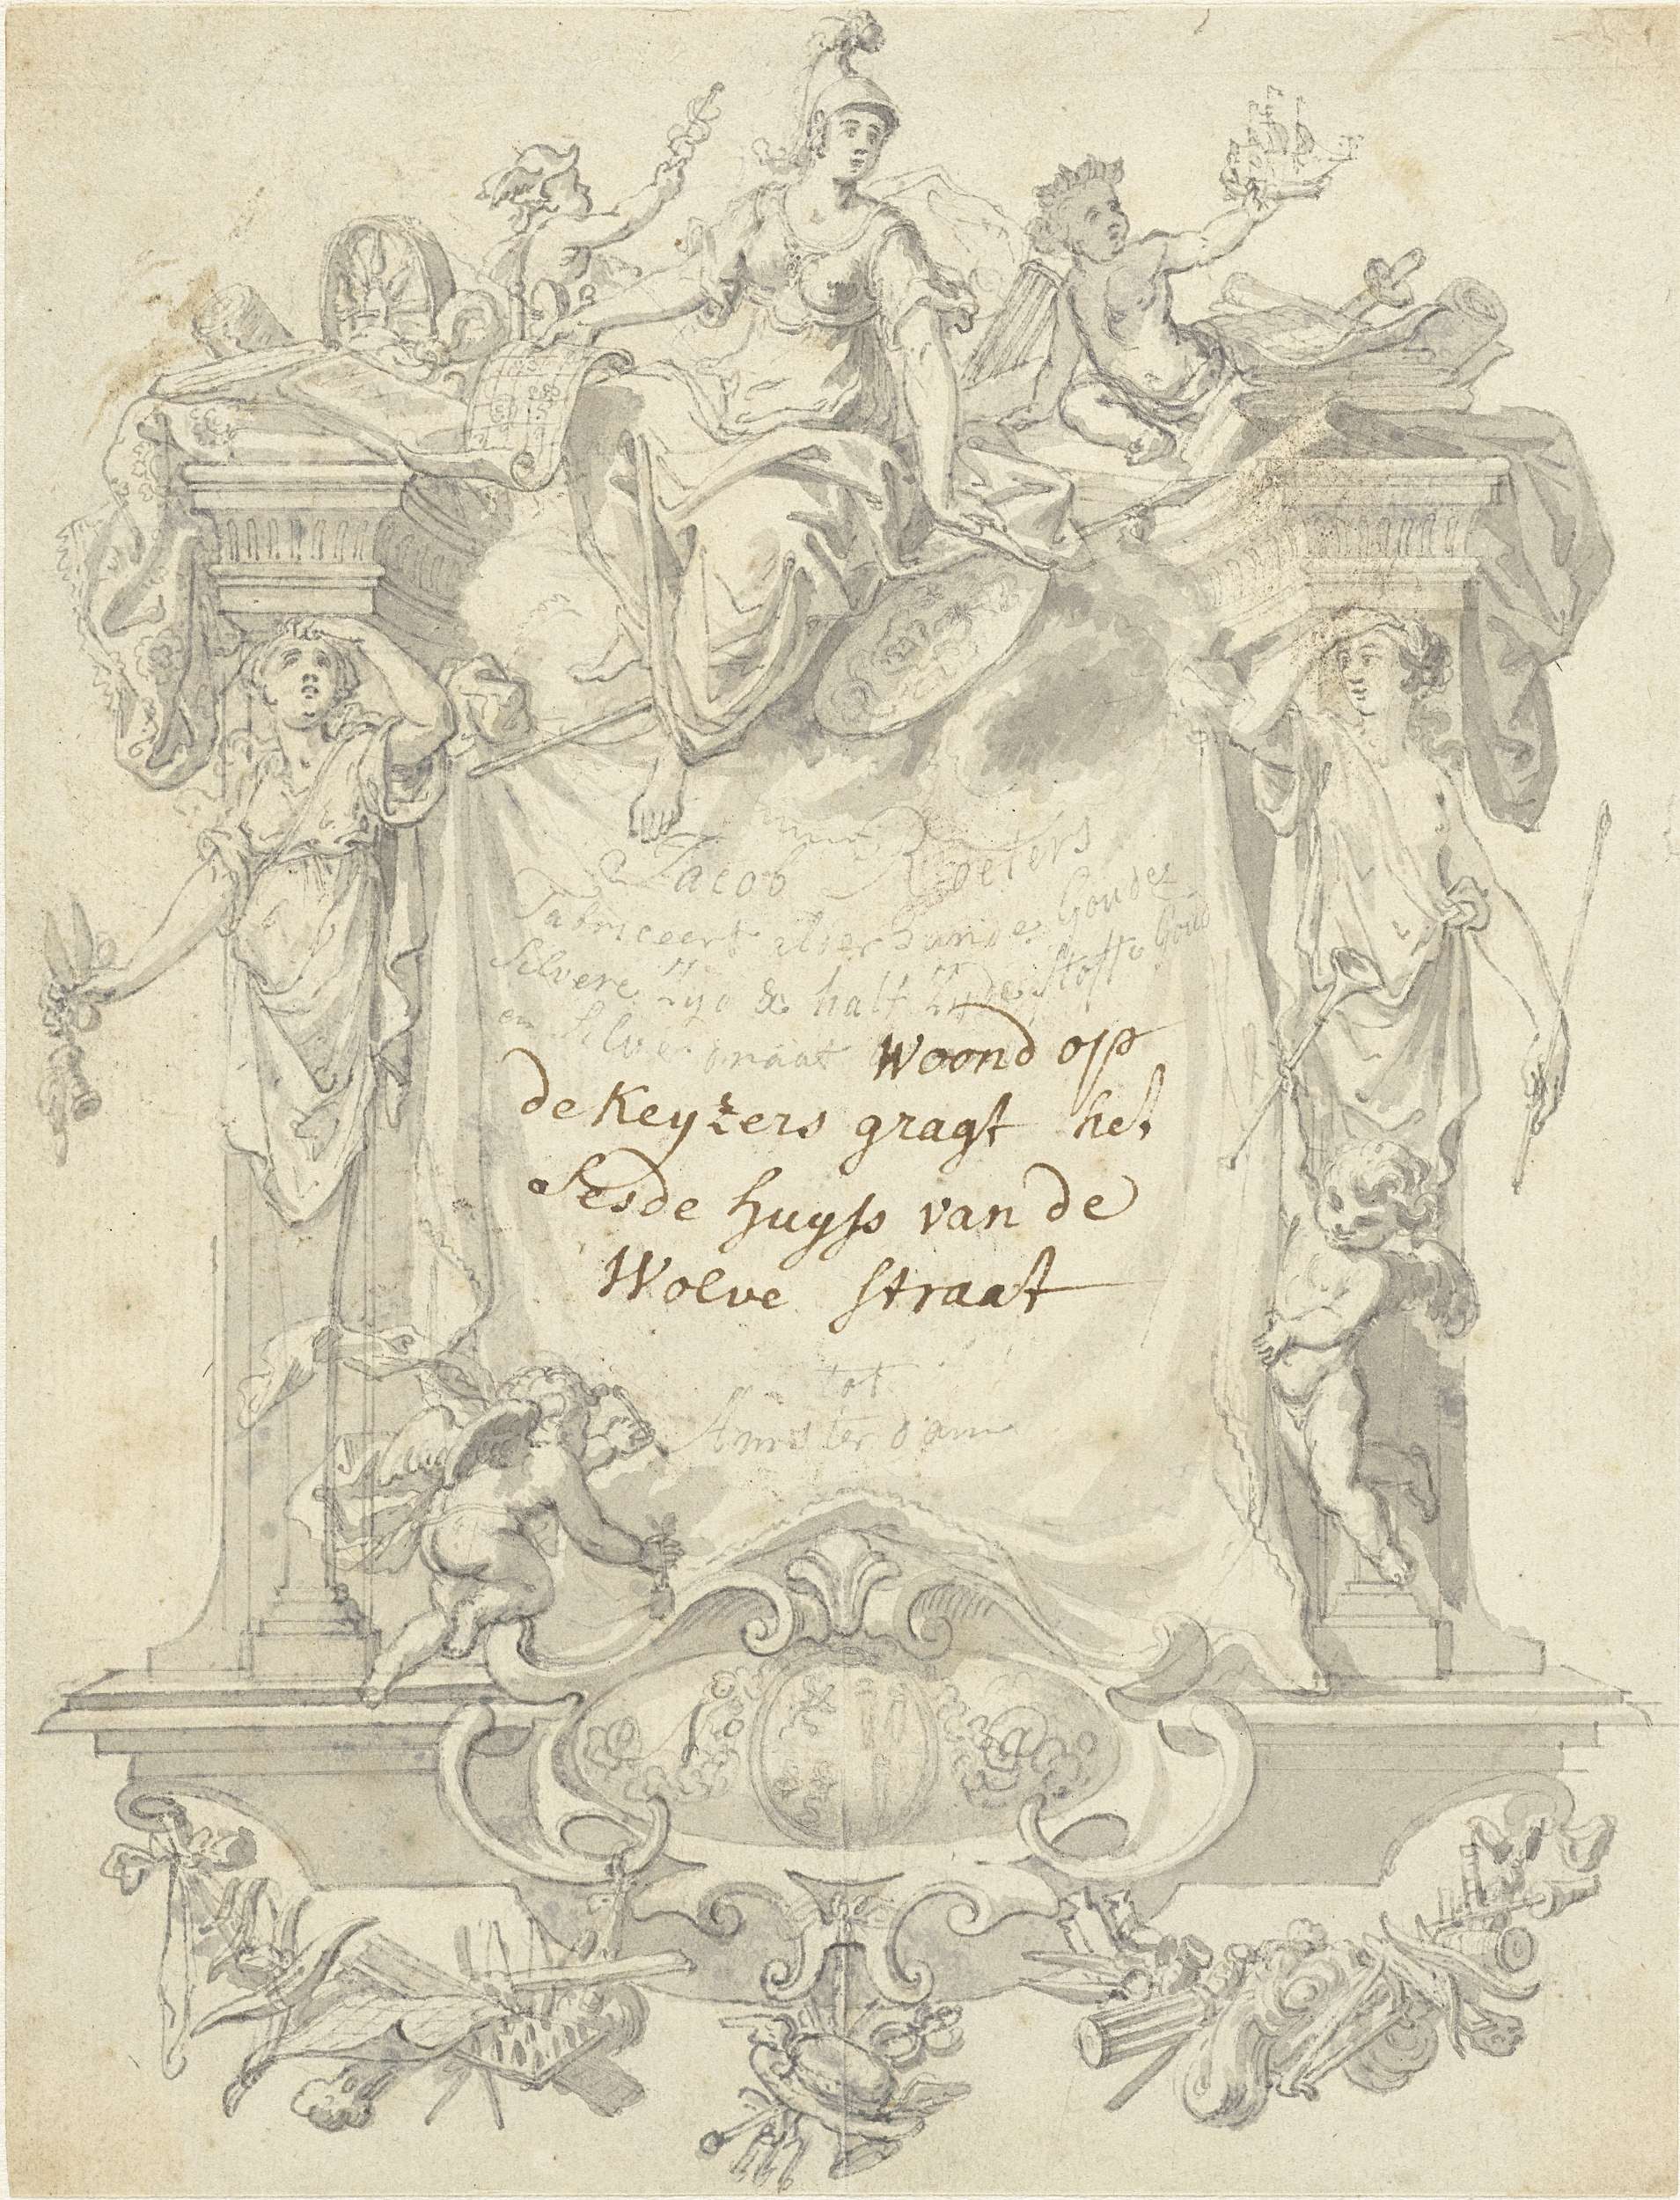 Jacob Roeters
Fabriceert alderhande Goude
Silvere Zyd & half Zyde stoffe Goud
en Silver draat Woond op
de Keyzers gragt het
Sesde huyss van de
Wolve straat
tot
Amsterdam